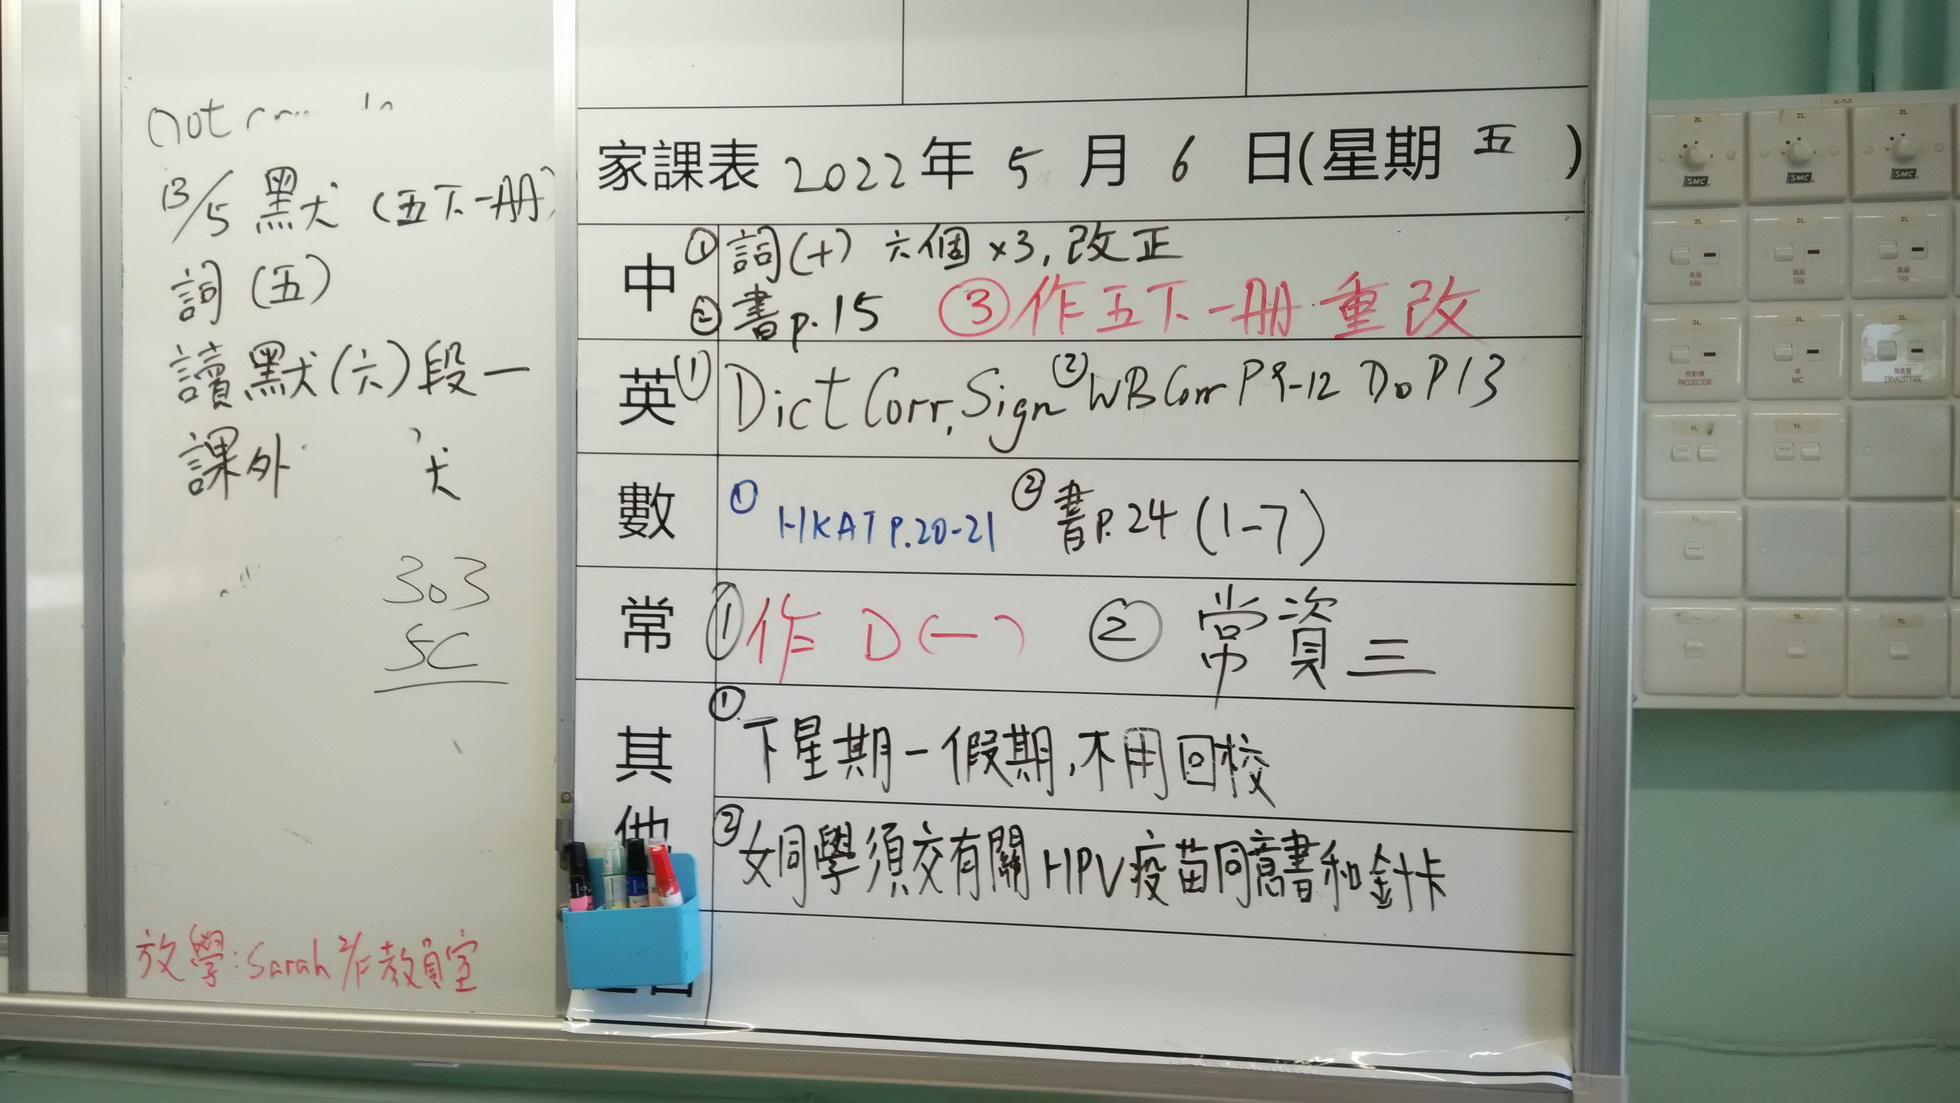 not
13/5 默 (五下一冊)
詞 (五)
讀默(六)段一
課外
303
5C
放學: Sarah 2/F 教員室
家課表 2022 年 5 月 6 日(星期 五 )
中 ① 詞(十) 六個 ×3, 改正
② 書p.15 ③ 作五下一冊 重改
英 (1) Dict Corr, Sign (2) WB Corr P9-12 Do P13
數 ① HKAT P.20-21 ② 書P.24 (1-7)
常 ① 作 D(一) ② 常資三
其他 ① 下星期一假期,不用回校
② 女同學須交有關HPV疫苗同意書和針卡
SMC
SMC
SMC
2L
2L
2L
風扇
FAN
風扇
FAN
風扇
FAN
投影機
PROJECTOR
MIC
抽氣扇
EXHAUST FAN